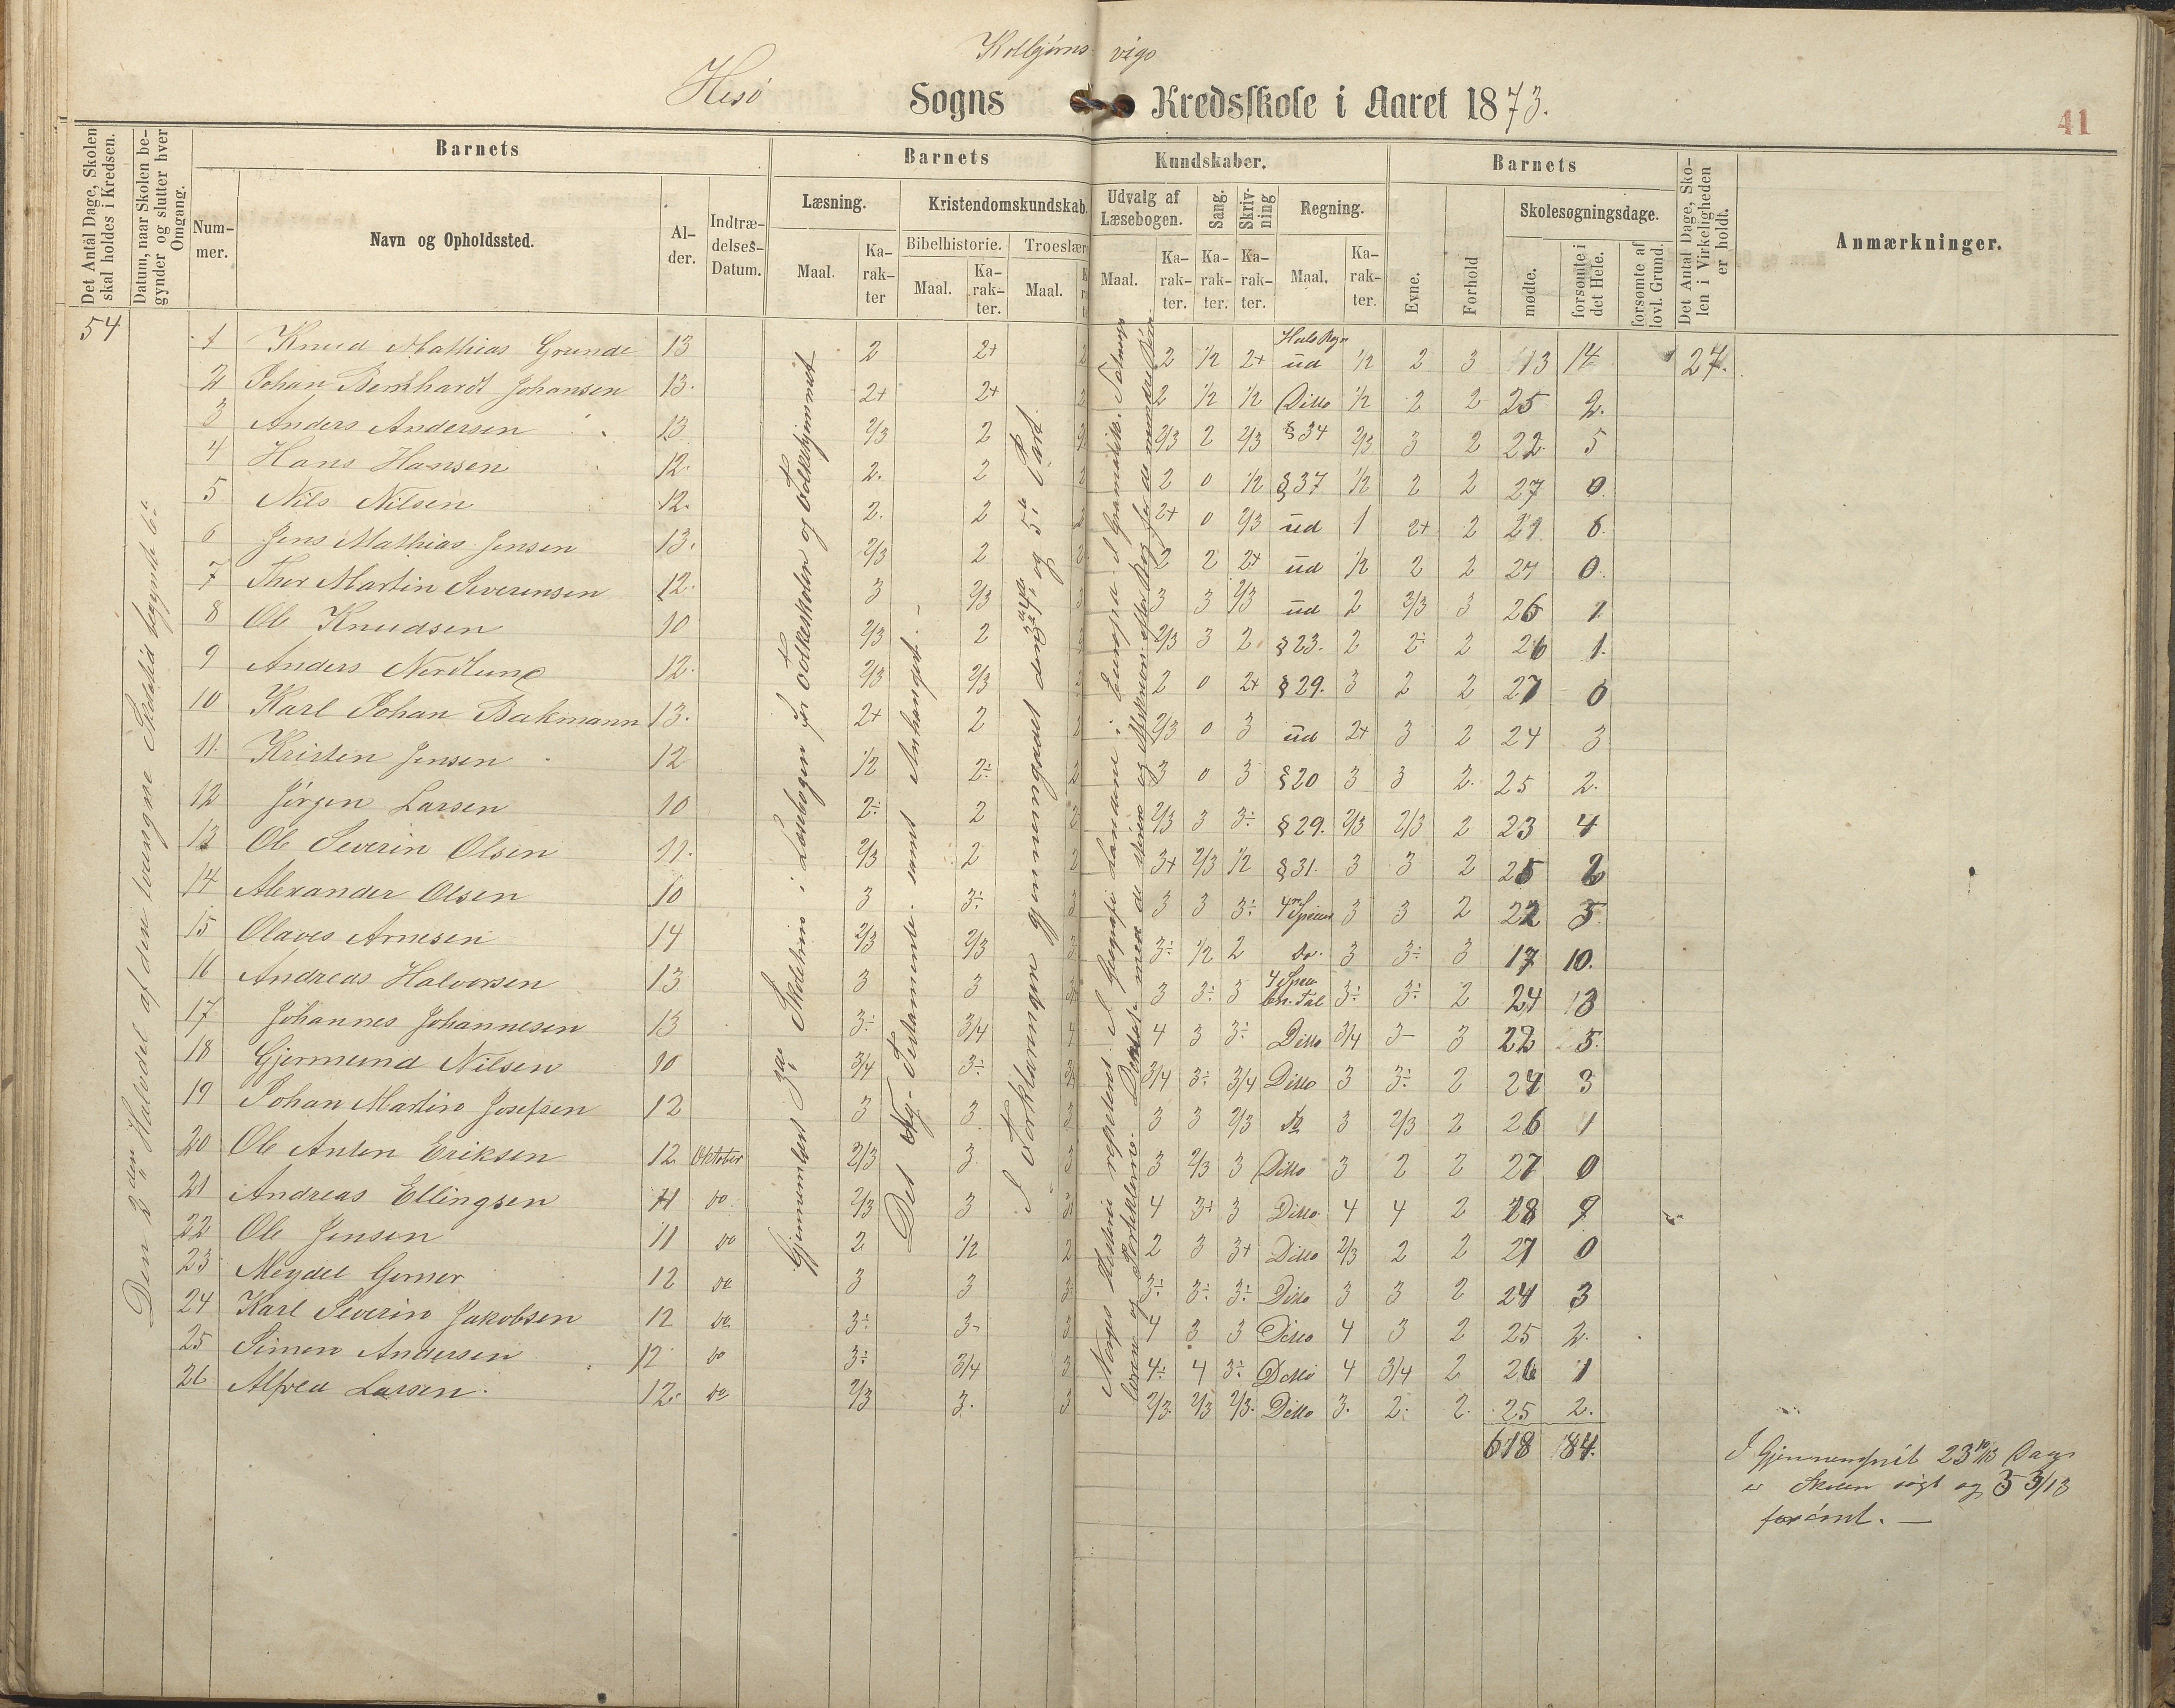 Kolbjørns vigs
Hisö Sogns Kredsskole i Aaret 1873.
41
Det Antal Dage, Skolen skal holdes i Kredsen.
Datum, naar Skolen begynder og slutter hver Omgang.
Barnets
Nummer.
Navn og Opholdssted.
Alder.
Indtrædelses-Datum.
Barnets Kundskaber.
Læsning.
Maal.
Karakter
Kristendomskundskab.
Bibelhistorie.
Maal.
Karakter.
Troeslære
Maal.
Udvalg af Læsebogen.
Maal.
Karakter.
Sang.
Karakter.
Skrivning
Karakter.
Regning.
Maal.
Karakter.
Barnets
Evne.
Forhold
Skolesøgningsdage.
mødte.
forsømte i det Hele.
forsømte af lovl. Grund.
Det Antal Dage, Skolen i Virkeligheden er holdt.
Anmærkninger.
54
Den 2den Halvdel af den tvungne Skoletid begyndte 6.
Gjennemlæst 3die Skoletrin i Læsebogen for Folkeskolen og Folkehjemmet
Det Ny-Testamente samt Anhanget. -
I Forklaringen gjennemgaaet 4de og 5te Part.
1 Knud Mathias Grunde 13 2 2+ 2 2 1/2 2+ Hele Regn ud 1/2 2 3 13 14 27.
2 Johan Bernhardt Johansen 13. 2+ 2+ 2 2 1/2 1/2 Ditto 1/2 2 2 25 2.
3 Anders Andersen 13 2/3 2 2/3 2 2/3 § 34 2/3 3 2 22 5
4 Hans Hansen 12. 2. 2 2 2 0 1/2 § 37 1/2 2 2 27 0.
5 Nils Nilsen 12. 2. 2 2 2+ 0 2/3 ud 1 2+ 2 21 6
6 Jens Mathias Jensen 13. 2/3 2 2 2 2 2+ ud 1/2 2 2 27 0.
7 Thor Martin Severensen 12. 3 2/3 3 3 3 2/3 ud 2 2/3 3 26 1
8 Ole Knudsen 10 2/3 2 2/3 3 2 § 23. 2 2÷ 2 26 1.
9 Anders Nordlund 12. 2/3 2/3 2 2 0 2+ § 29. 3 2 2 27 0
10 Karl Johan Bakmann 13. 2+ 2 2 2/3 0 3 ud 2+ 3 2 24 3
11. Kristen Jensen 12 1/2 2÷ 2 3 0 3 § 20 3 3 2. 25 2.
12 Jörgen Larsen 10 2÷ 2 2/3 3 3÷ § 29. 2/3 2/3 2 23 4
13 Ole Severin Olsen 11. 2/3 2 2 3+ 2/3 1/2 § 31. 3 3 2 25 2
14 Alexander Olsen 10 3 3÷ 3 3 3 3÷ 3 3 2 22 5
15 Olaves Arnesen 14 2/3 2/3 3 3÷ 1/2 2 do. 3 3÷ 3 17 10.
16 Andreas Halvorsen 13 3 3 3 3÷ 3 3÷ 3÷ 2 24 3
17 Johannes Johannesen 13 3÷ 3/4 4 4 3 3÷ Ditto 3/4 3- 3 22 5.
18 Gjermund Nilsen 10 3/4 3÷ 3/4 3÷ 3/4 Ditto 3 3÷ 2 24 3
19 Johan Martin Josefsen 12 3 3 3 3 3 2/3 do 3 2/3 2 26 1
20 Ole Anton Eriksen 12 Oktober 2/3 3 3 3 2/3 3 Ditto 3 2 2 27 0
21 Andreas Ellingsen 11 do 2/3 3 3 4 3+ 3 Ditto 4 4 2 18 9
22 Ole Jensen 11 do 2 1/2 2 2 3 3+ Ditto 2/3 2 2 27 0
23 Meydel Gerner 12 do 3 3 3 3÷ 3÷ 3÷ Ditto 3 3 2 24 3
24 Karl Severin Jakobsen 12 do 3÷ 3- 3 4 3 3 Ditto 4 3 2 25 2.
25 Simon Andersen 12 do 3÷ 3/4 3 4÷ 4 3÷ Ditto 4 3/4 2 26 1
26 Alfred Larsen. 12. do 2/3 3. 3 2/3 2/3 2/3. Ditto 3. 2÷ 2. 25 2.
618 84.
I Gjennemsnit 23 10/13 Dage
er Skolen søgt og 3 3/13
forsömt. -